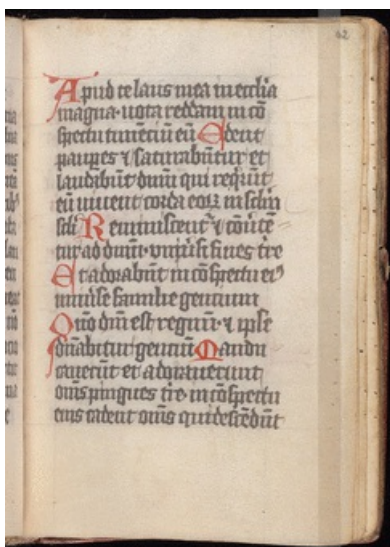 42
Apud te laus mea in ecclia
magna· uota reddam in cō
spectu timētiū eū Edent
paupes ⁊ saturabūtur et
laudabūt dnm̄ qui reqr̄ūt
eū uiuent corda eoꝝ in sclm̄
scli Reminiscent̄ ⁊ cōuertē
tur ad dnm̄· vniuersi fines tr̄e
Et adorabūt in cōspectu ei⁹
uniūse familie gentium
Qm̄o dn̄i est regnū· ⁊ ipse
dn̄abitur gentiū Mandu
cauerūt et adorauerunt
om̄s pingues tr̄e· in cōspectu
eius cadent om̄s qui descēdūt